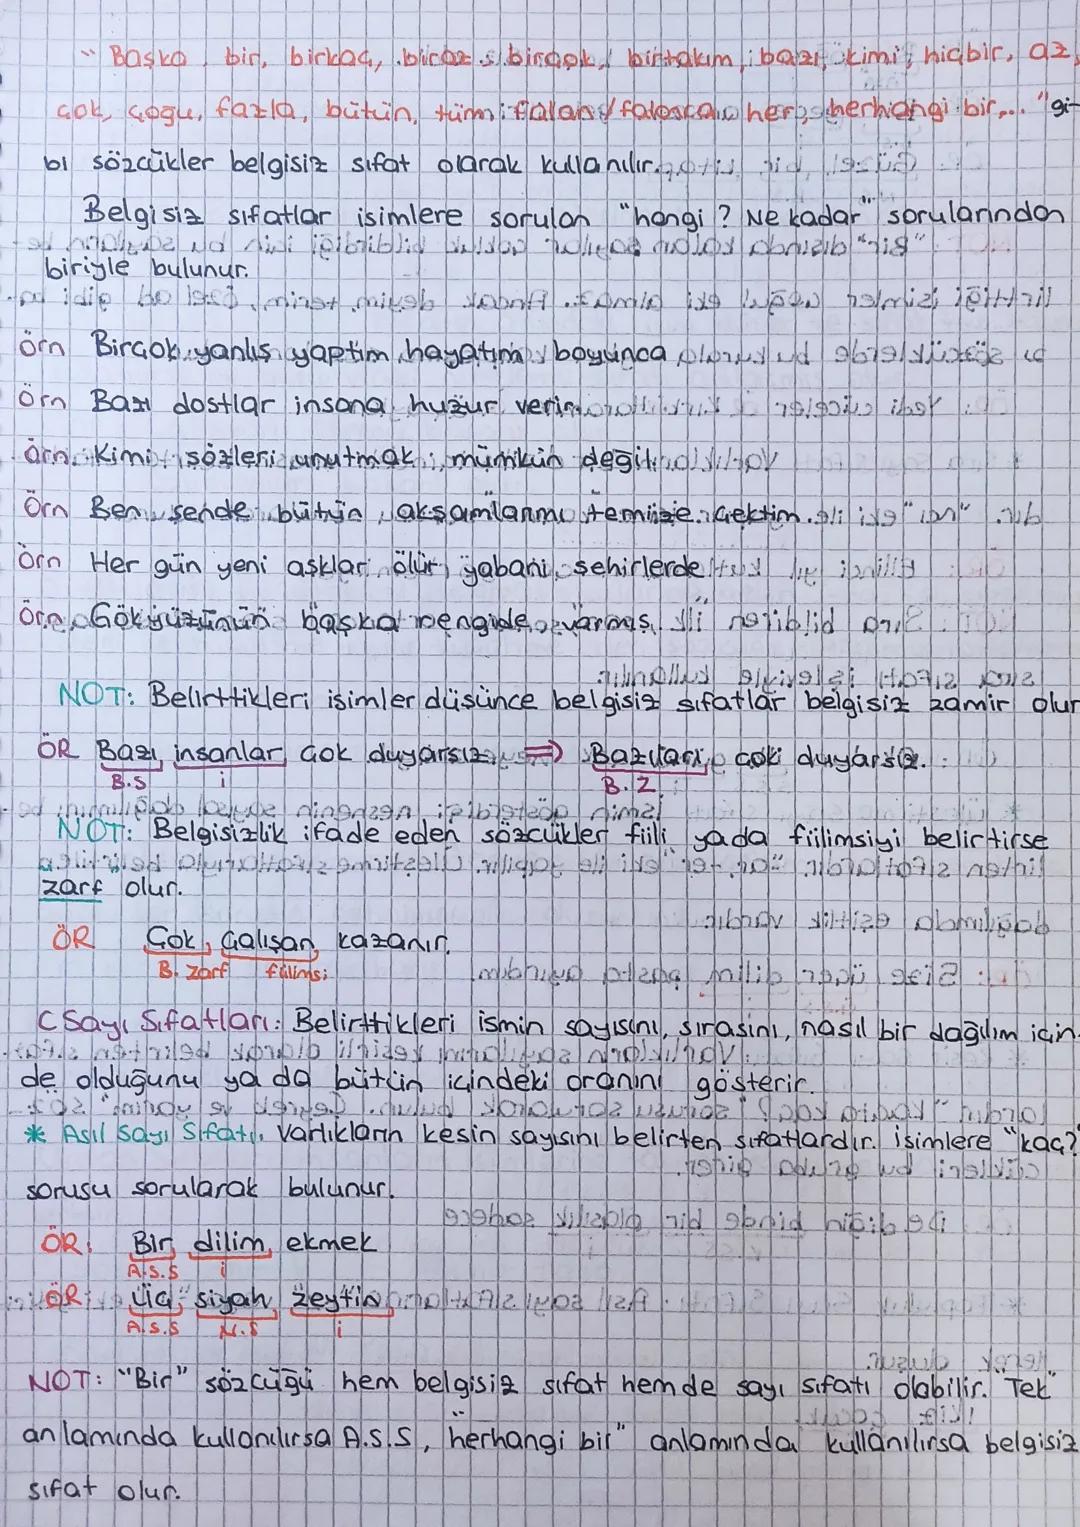 "Başka, bir, birkaç, biraz, birçok, birtakım, bazı, kimi, hiçbir, az,
çok, çoğu, fazla, bütün, tüm, falan/falanca, her, herhangi bir,..." gi-
bi sözcükler belgisiz sıfat olarak kullanılır.
Belgisiz sıfatlar isimlere sorulan "hangi? Ne kadar" sorularından
biriyle bulunur.
Örn Birçok yanlış yaptım hayatım boyunca
Örn Bazı dostlar insana huzur verir.
Örn Kimi sözleri unutmak mümkün değil.
Örn Ben sende bütün akşamlarımı temize çektim.
Örn Her gün yeni aşklar ölür yabani şehirlerde
Örn Gökyüzünün başka rengide varmış
NOT: Belirttikleri isimler düşünce belgisiz sıfatlar belgisiz zamir olur
ÖR Bazı insanlar çok duyarsız ⇒ Bazıları çok duyarsız.
B.S i B.Z
NOT: Belgisizlik ifade eden sözcükler fiili yada fiilimsiyi belirtirse
zarf olur.
ÖR Çok çalışan kazanır.
B. zarf fiilimsi
C Sayı Sıfatları: Belirttikleri ismin sayısını, sırasını, nasıl bir dağılım için-
de olduğunu ya da bütün içindeki oranını gösterir.
* Asıl Sayı Sıfatı: Varlıkların kesin sayısını belirten sıfatlardır. isimlere "kaç?"
sorusu sorularak bulunur.
ÖR: Bir dilim ekmek
A.S.S i
ÖR: Üç siyah zeytin
A.S.S N.S i
NOT: "Bir" sözcüğü hem belgisiz sıfat hemde sayı sıfatı olabilir. "Tek"
anlamında kullanılırsa A.S.S, "herhangi bir" anlamında kullanılırsa belgisiz
sıfat olur.